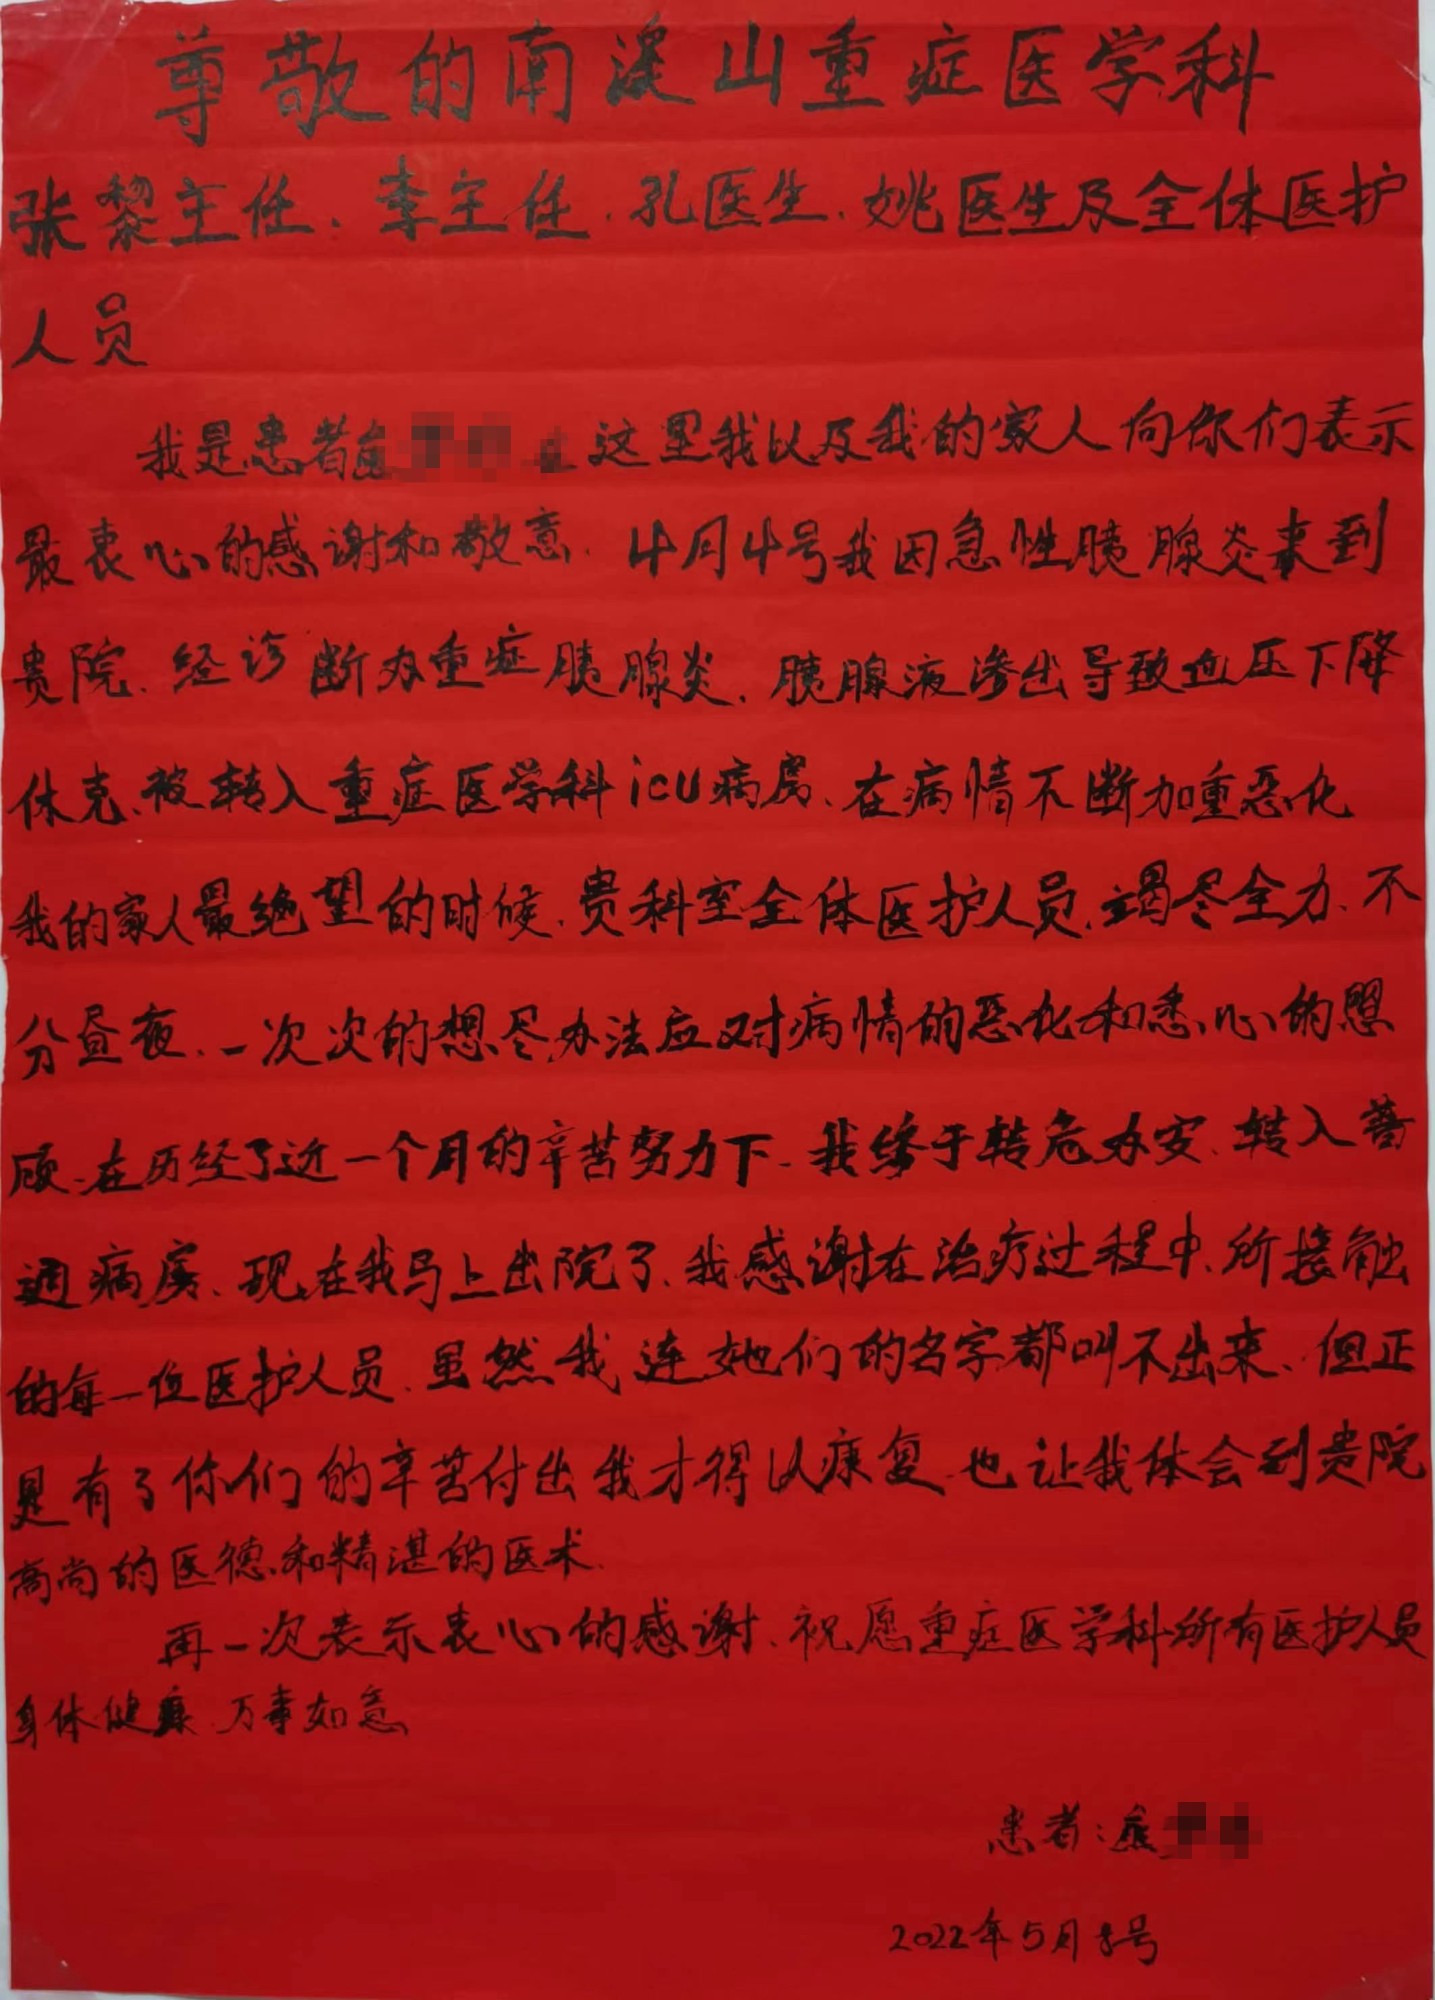 尊敬的南溪山重症医学科
张黎主任、李主任、孔医生、姚医生及全体医护
人员
我是患者 这里我以及我的家人向你们表示
最衷心的感谢和敬意、4月4号我因急性胰腺炎来到
贵院、经诊断为重症胰腺炎、胰腺液渗出导致血压下降
休克、被转入重症医学科icu病房、在病情不断加重恶化
我的家人最绝望的时候、贵科室全体医护人员、竭尽全力、不
分昼夜、一次次的想尽办法应对病情的恶化和悉心的照
顾、在历经了近一个月的辛苦努力下、我终于转危为安、转入普
通病房、现在我马上出院了、我感谢在治疗过程中、所接触
的每一位医护人员、虽然我连她们的名字都叫不出来、但正
是有了你们的辛苦付出我才得以康复、也让我体会到贵院
高尚的医德和精湛的医术、
再一次表示衷心的感谢、祝愿重症医学科所有医护人员
身体健康、万事如意
患者:
2022年5月 号